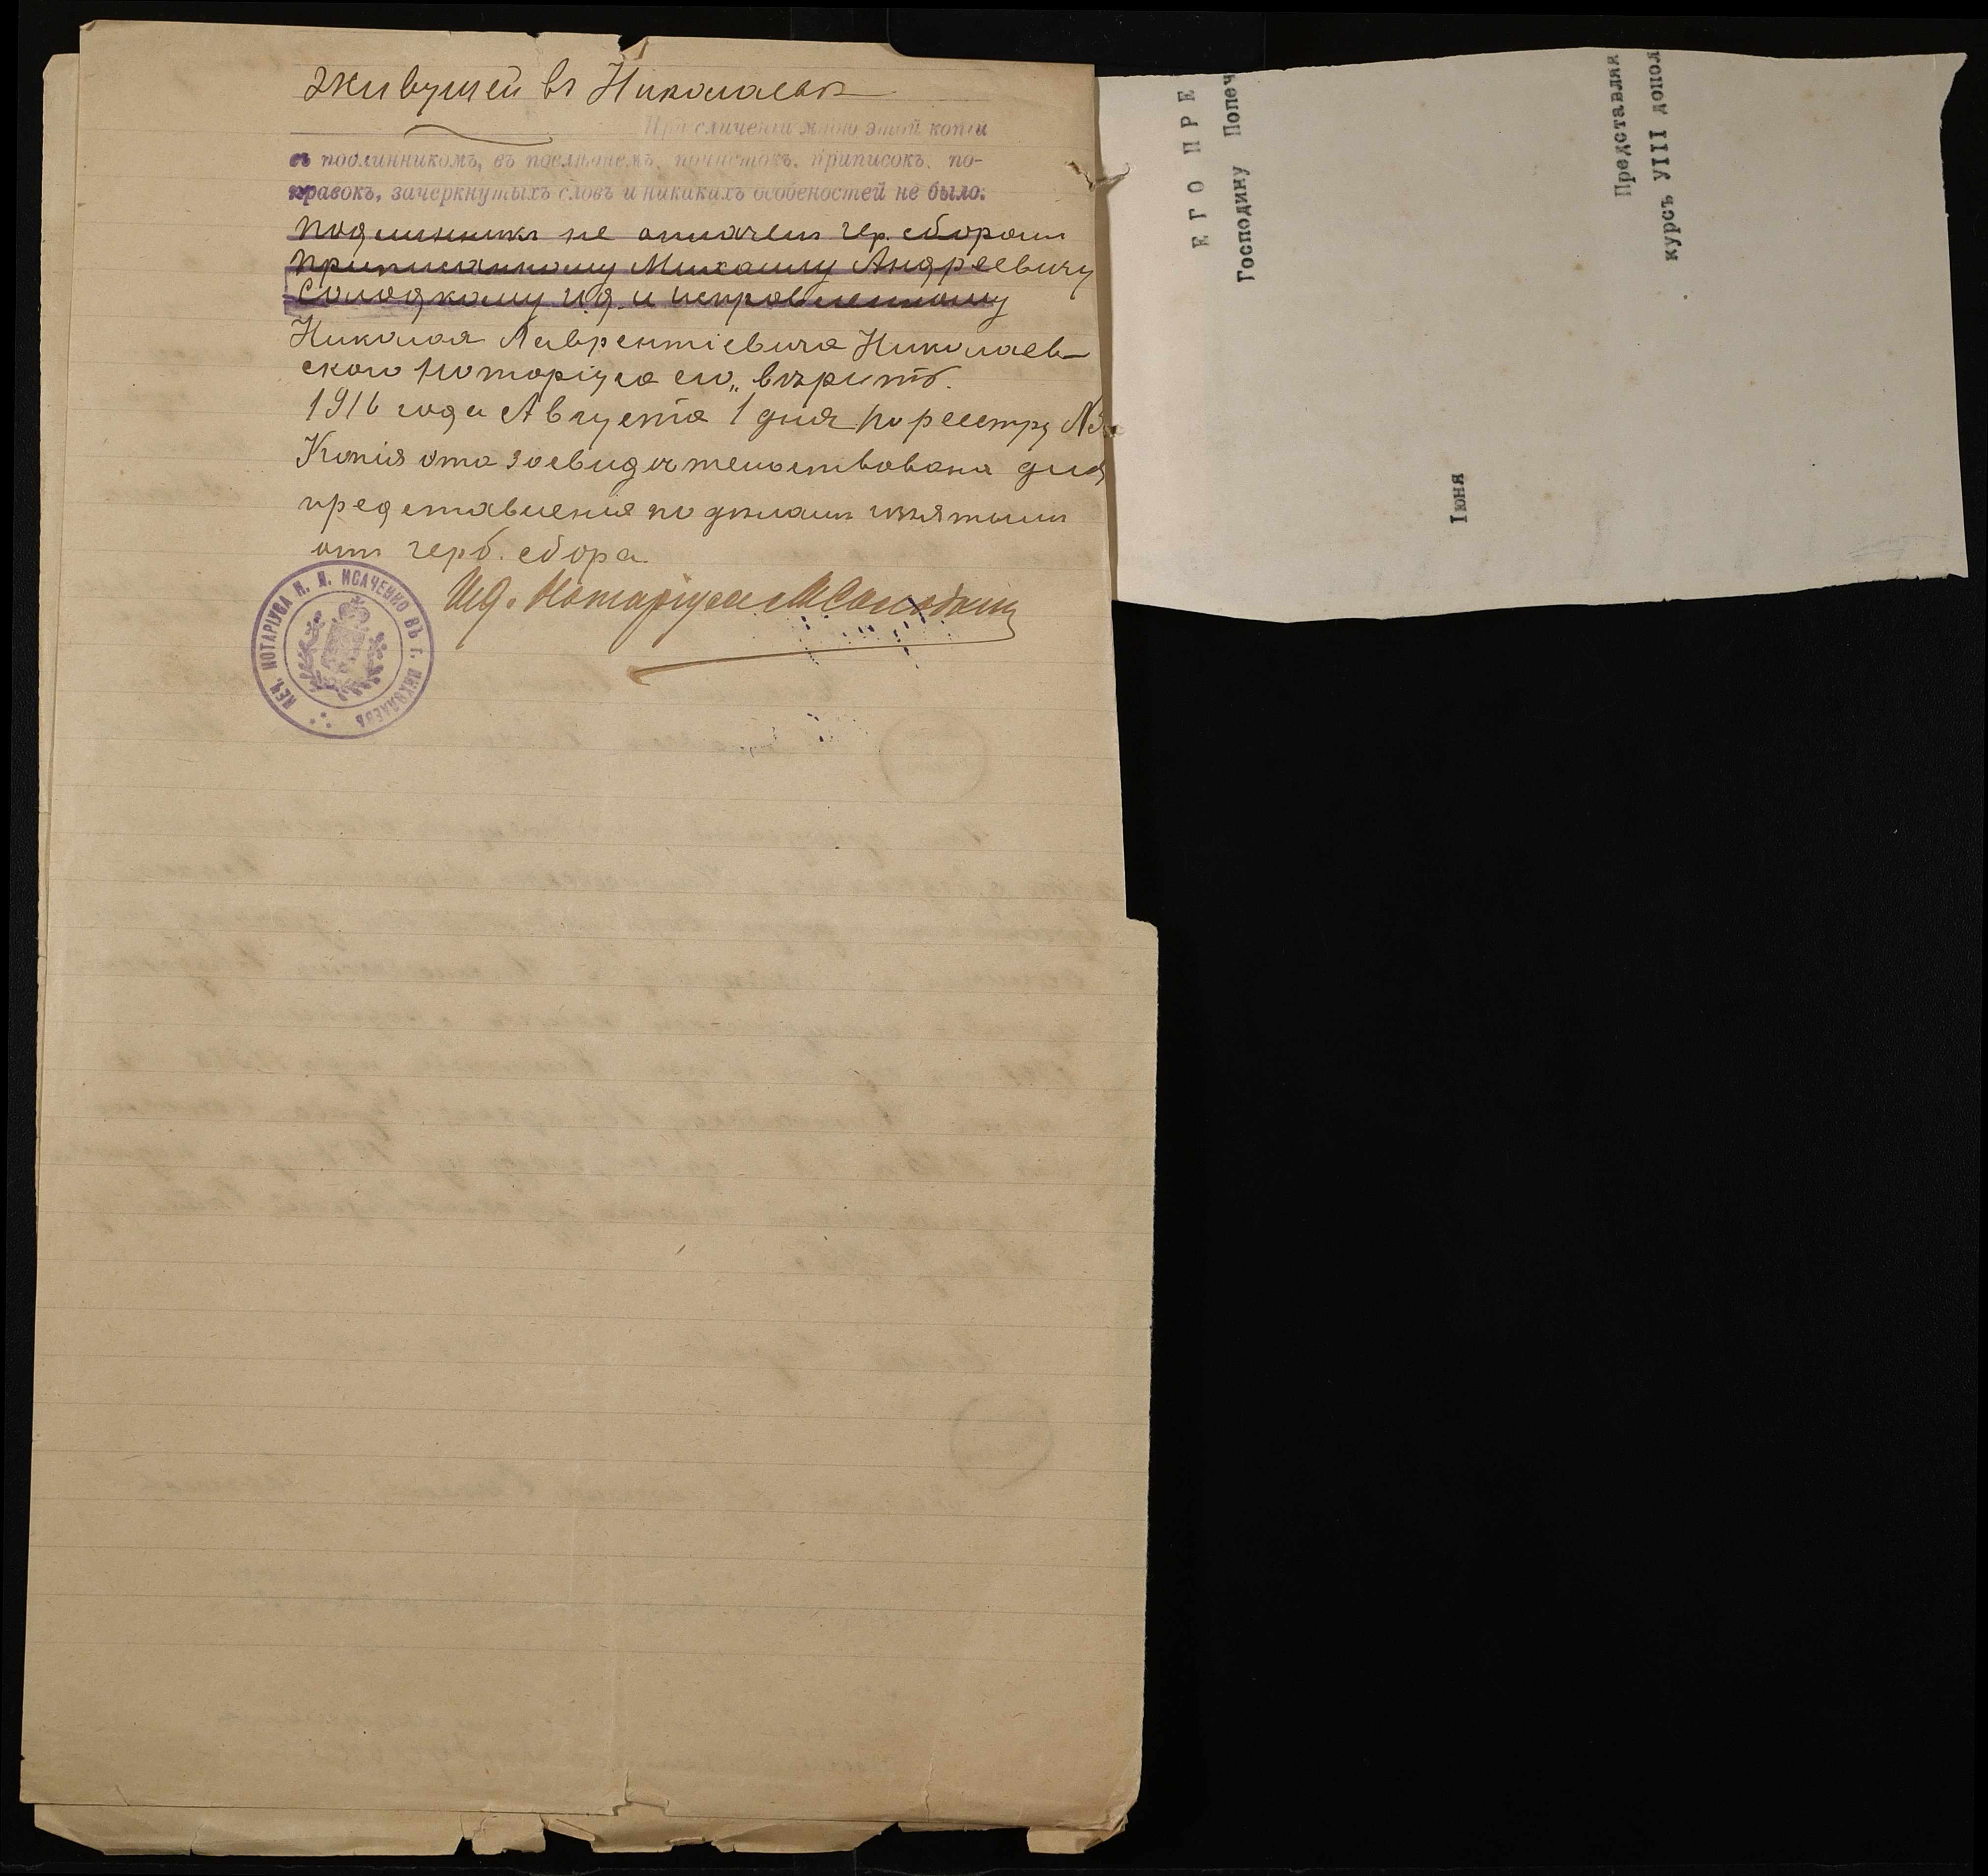 живущей въ Николаевѣ
При сличеніи мною этой копіи
съ подлинникомъ, въ послѣднемъ, почистокъ, приписокъ, по-
правокъ, зачеркнутыхъ словъ и никакихъ особеностей не было.
подлинникъ не оплаченъ гер. сборомъ
Михаилу Андреевичу
Солодкому и.д. и
Николая Лаврентіевича Николаев-
скаго Нотаріуса
1916 года Августа 1 дня по реестру №
Копія эта засвидѣтельствована для
представленія по дѣламъ изъятымъ
отъ герб. сбора.
И.д. Нотаріуса МСолодкій
ПЕЧ. НОТАРІУСА Н. Л. ИСАЧЕНКО ВЪ Г. НИКОЛАЕВѢ
ЕГО ПРЕ
Господину Попеч
Іюня
Представляя
курсъ УІІІ допол